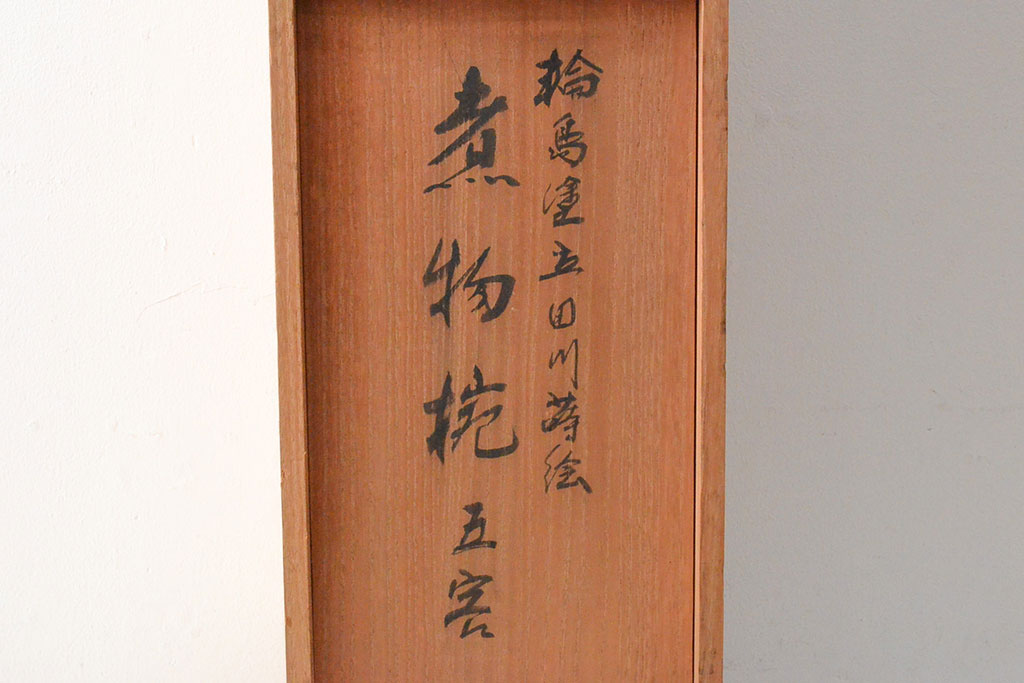 輪島塗立田川蒔絵
煮物椀五客